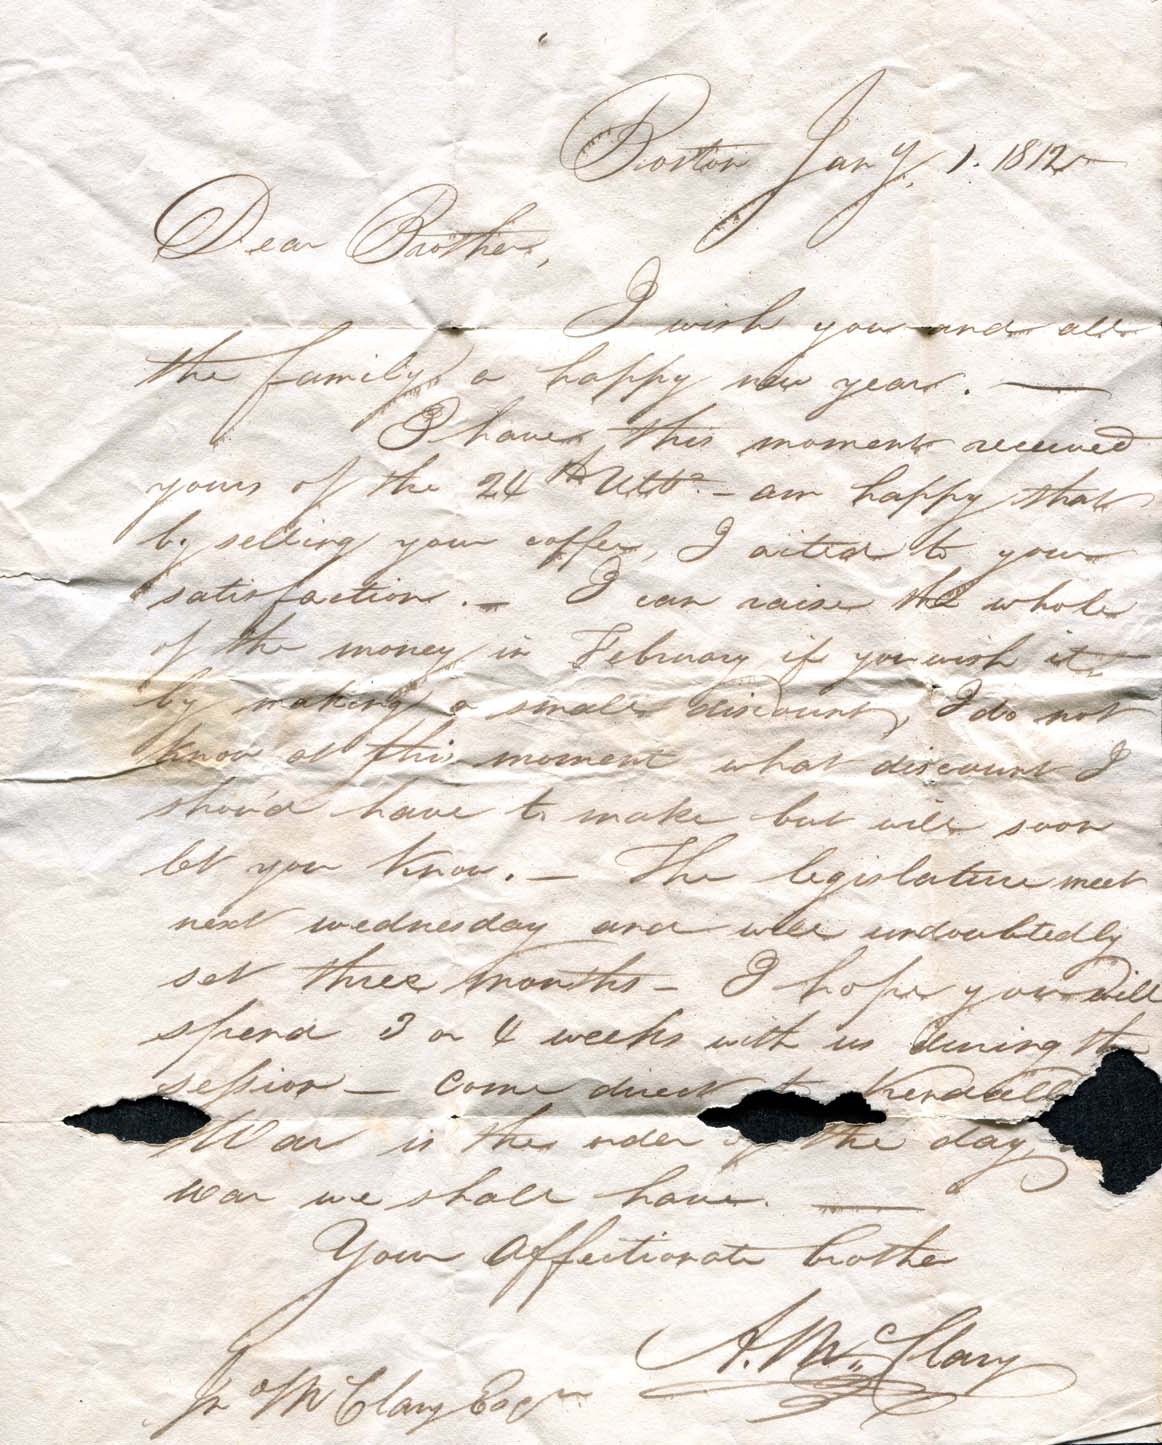 Boston Jany. 1. 1812
Dear Brother,
I wish you and all
the family a happy new year. —
I have this moment received
yours of the 24th Ulto. – am happy that
by selling your coffee, I acted to your
satisfaction. – I can raise the whole
of the money in February if you wish it
by making a small discount, I do not
know at this moment what discount I
shou'd have to make but will soon
let you know. – The legislature meet
next wednesday and will undoubtedly
set three months – I hope you will
spend 3 or 4 weeks with us during the
session – Come direct to Kendalls
War is the order of the day,
War we shall have. —
Your Affectionate brother
A. McClary
Jno McClary Esqr